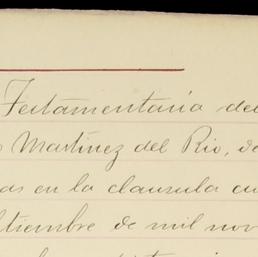 Testamentaria del
Martínez del Rio, de
as en la clausula cu
tiembre de mil nov